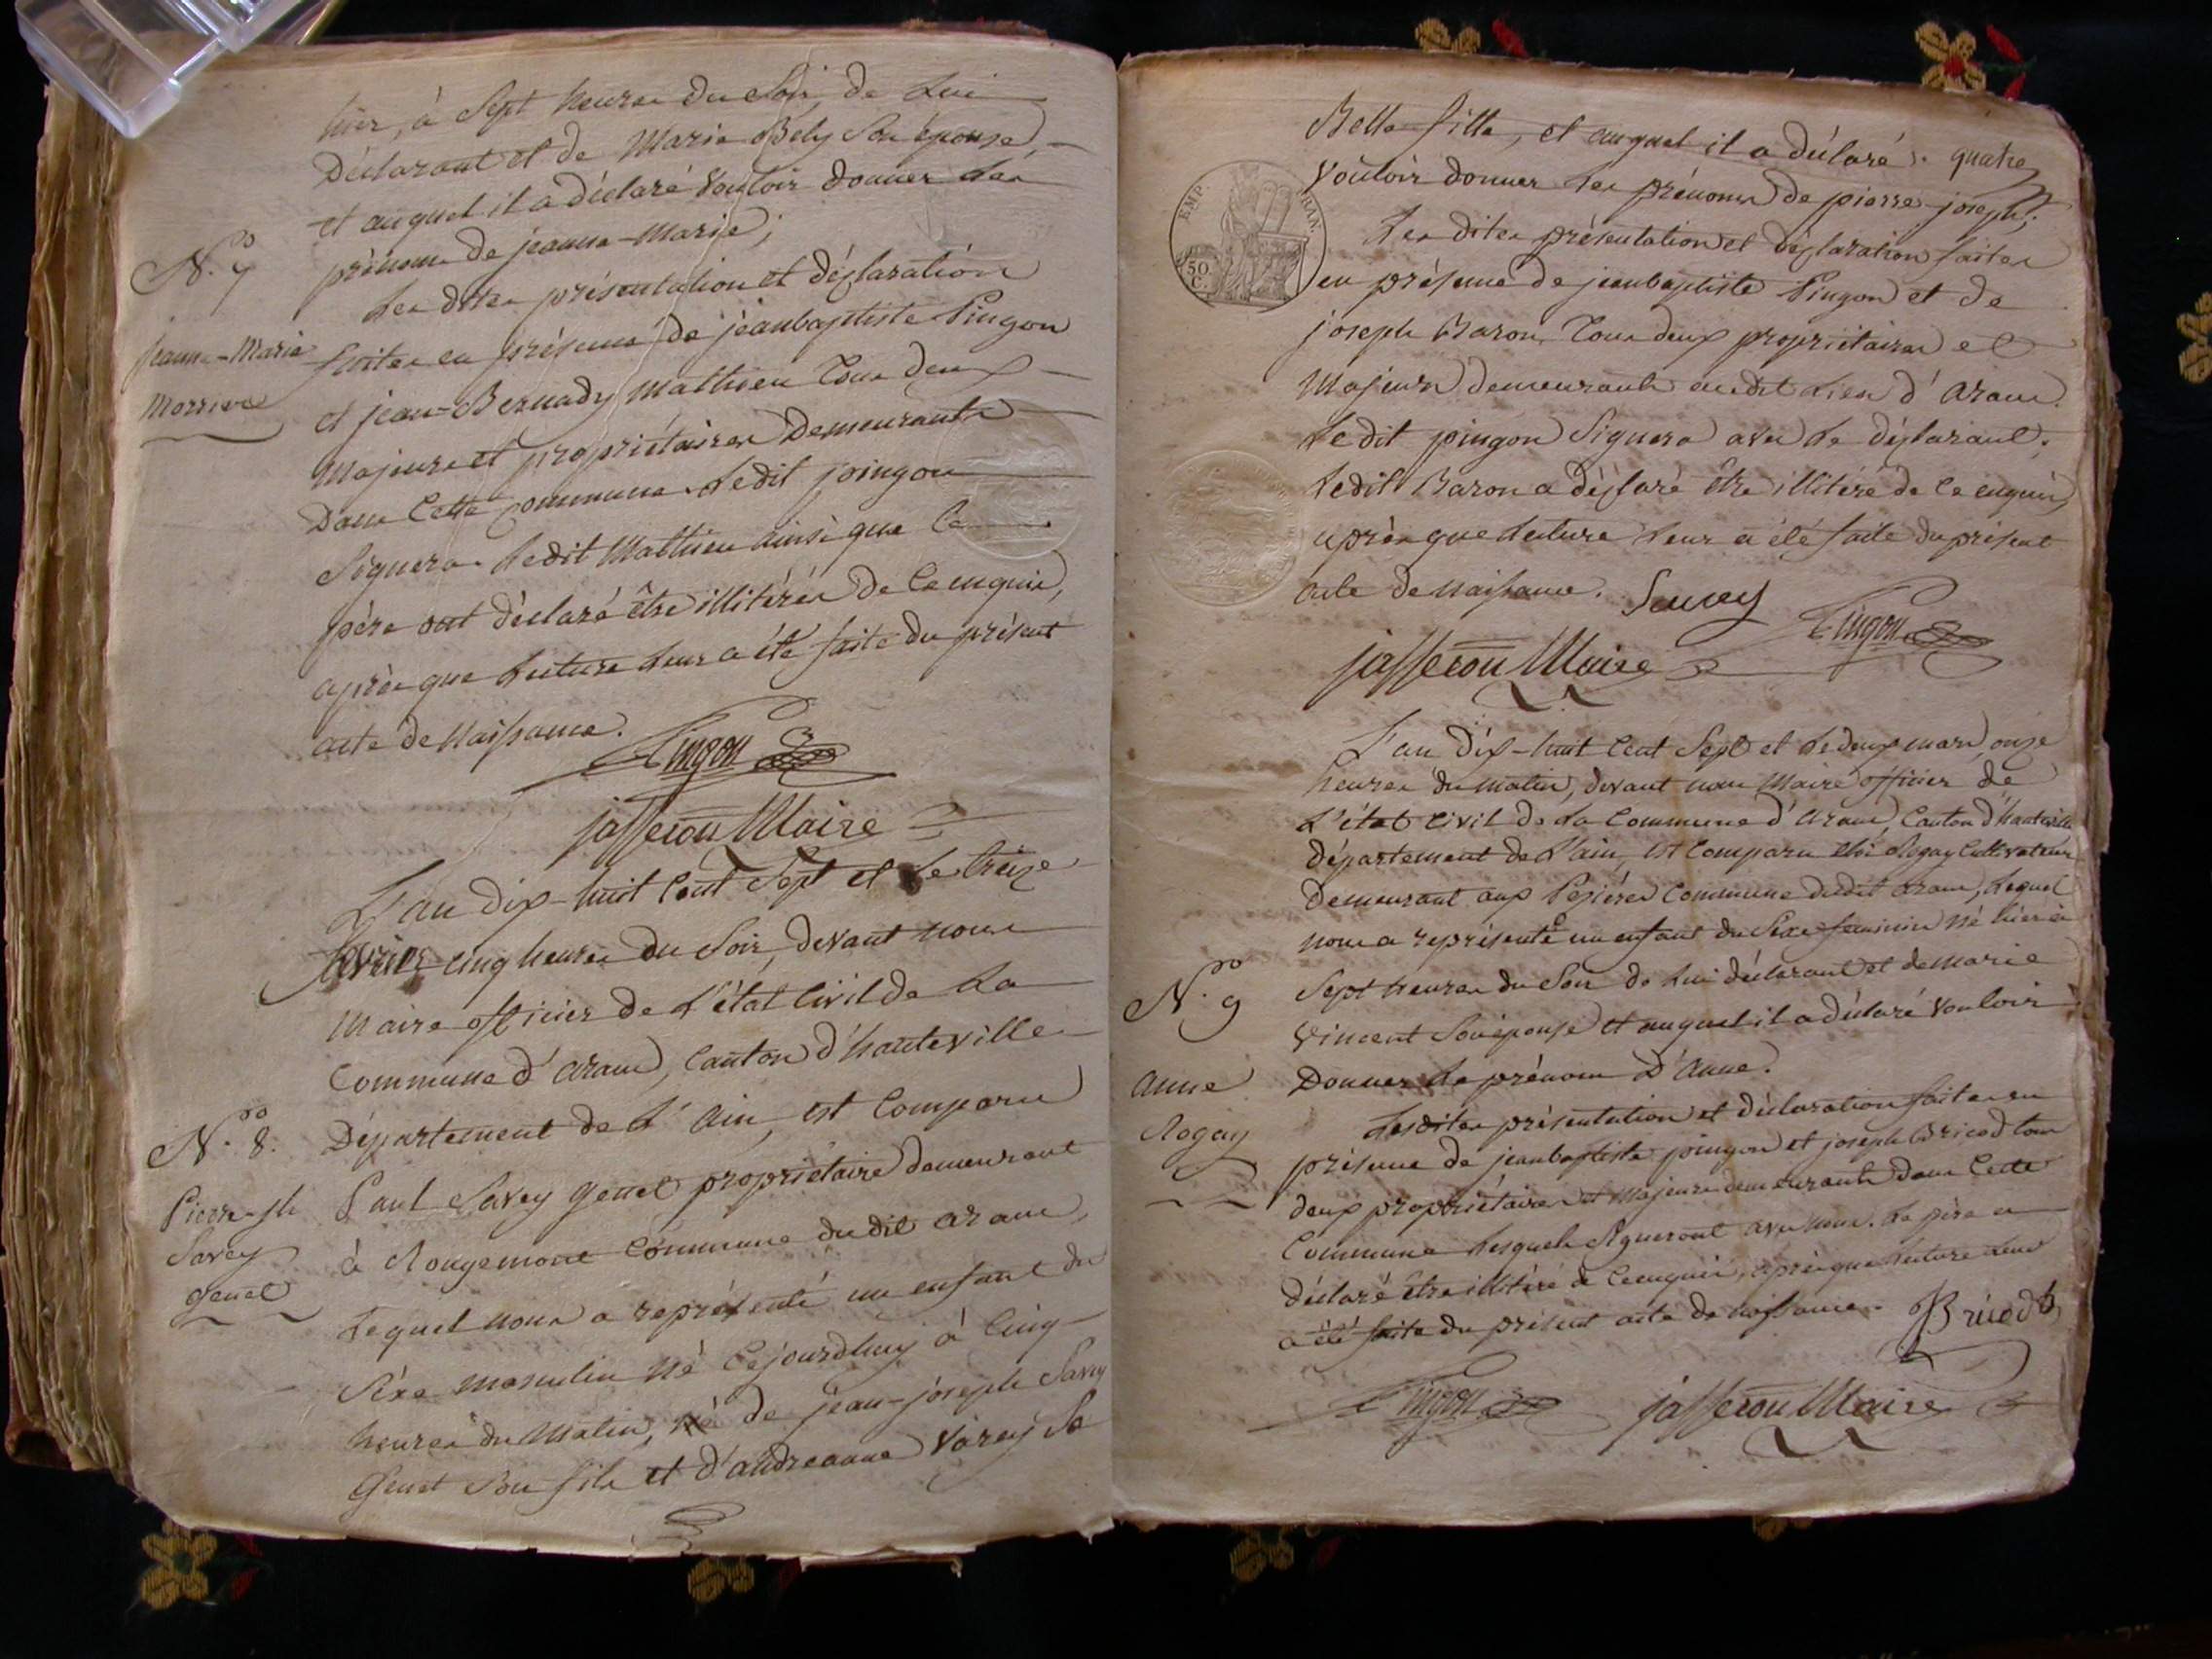 hier, à Sept heures du Soir, de Lui
Déclarant et de Marie Bely Son épouse,
et auquel il a déclaré Vouloir donner Les
prénoms de jeanne-Marie;
N.º 7
Les dites présentation et déclaration
Jeanne-Marie
faites en présence de jeanbaptiste Pingon
et jean-Bernady Mathieu Tous deux
Majeurs et propriétaires Demeurants
Dans Cette Commune. Ledit pingon
Signera. Ledit Mathieu ainsi que Le
père ont déclaré être illitérés de Ce enquis,
après que Lecture Leur a été faite du présent
acte de Naissance. Pingon
jasseron Maire
L'an dix-huit Cent Sept et Le treize
fevrier cinq heures du Soir, devant nous
Maire officier de L'état Civil de La
Commune d'aranc, Canton d'hauteville
N.º 8.
Département de L'Ain, est Comparu
Pierre-jh
Savey
genet
Paul Savey genet propriétaire demeurant
à Rougemont Commune du dit aranc,
Lequel nous a représenté un enfant du
Séxe masculin Né Cejourdhuy à Cinq
heures du Matin, né de jean-joseph Savey
Genet Son fils et d'andreanne Varey Sa
Belle fille, et auquel il a déclaré. quatre
Vouloir donner Les prénoms de pierre-joseph;
EMP. FRAN.
50 C.
Les dites présentation et déclaration faites
en présence de jeanbaptiste Pingon et de
joseph Baron, Tous deux propriétaires et
Majeurs demeurants audit Lieu d'aranc.
Le dit pingon Signera avec Le déclarant.
Ledit Baron a déclaré être illitéré de Ce enquis,
après que Lecture Leur a été faite du présent
acte de Naissance. Savey
Pingon
jasseron Maire
L'an dix-huit Cent Sept et Le deux mars, onze
heures du matin, devant nous Maire officier de
L'état Civil de La Commune d'aranc, Canton d'hauteville
département de L'ain, est Comparu Cultivateur
Demeurant aux Commune dudit aranc, Lequel
nous a représenté un enfant du Sexe feminin né hier à
N.º 9
Sept heures du Soir de Lui déclarant et de marie
Vincent Son épouse et auquel il a déclaré Vouloir
anne
Donner Le prénom D'anne.
Rogay
Lesdites présentation et déclaration faites en
présence de jeanbaptiste pingon et joseph Bricod tous
deux propriétaires et Majeurs demeurants dans Cette
Commune Lesquels Signeront avec nous. Le père a
déclaré être illitéré de Ce enquis, après que Lecture Leur
a été faite du présent acte de naissance. Bricod
Pingon jasseron Maire